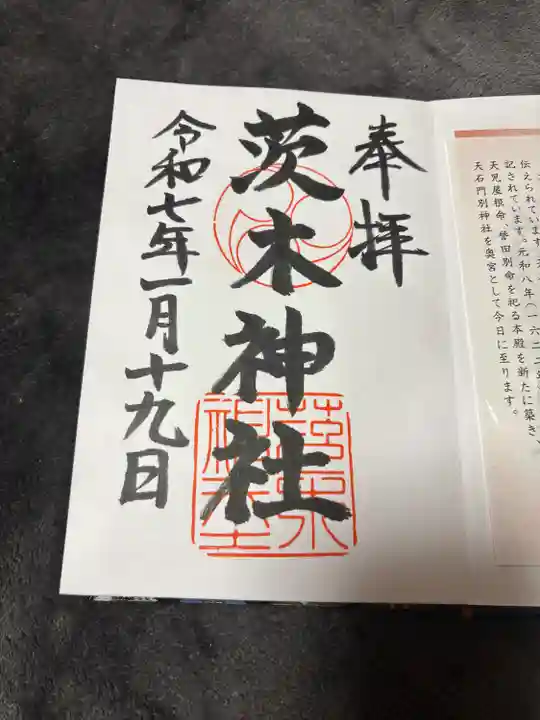 伝えられています。
元和八年(一六二二年
記されています。
天児屋根命、誉田別命を祀る本殿を新たに築き、
天石門別神社を奥宮として今日に至ります。
奉拝
茨木神社
令和七年一月十九日